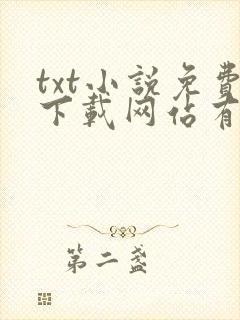 txt小說免費
下載网佔有
第二盏